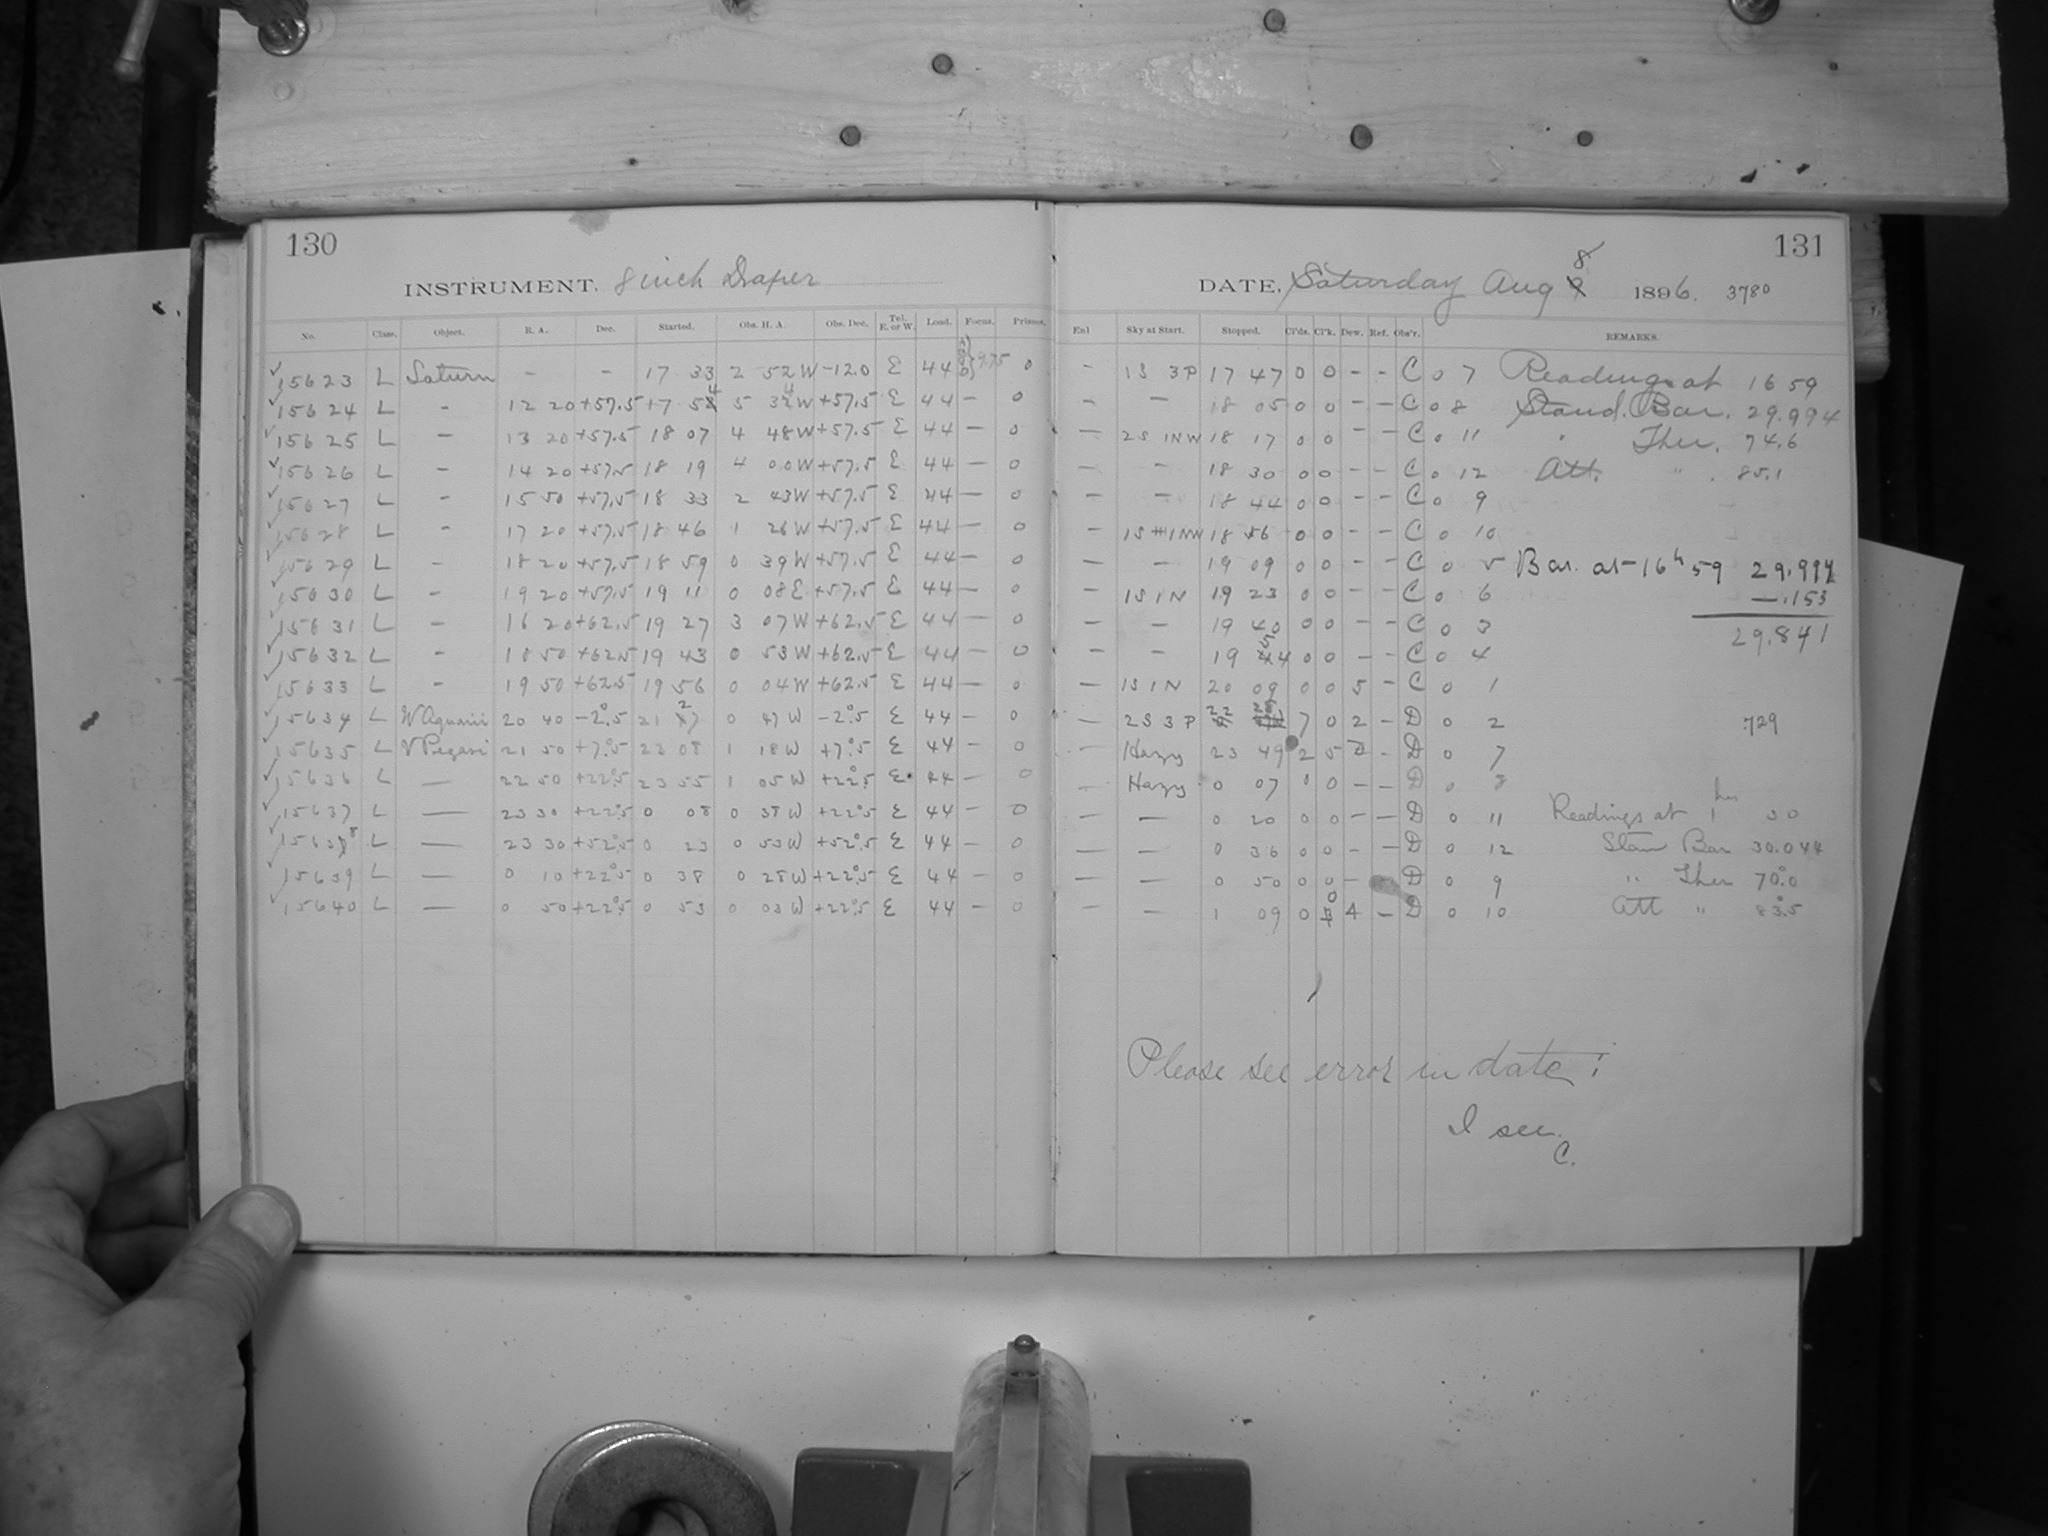 130
INSTRUMENT. 8 inch Draper
No. Class. Object. R. A. Dec. Started. Obs. H. A. Obs. Dec. Tel. E. or W. Load. Focus. Prisms.
✓ 15623 L Saturn - - 17 33 2 52 W -12.0 E 44 9.75 0
✓ 15624 L - 12 20 +57.5 17 54 5 34 W +57.5 E 44 - 0
✓ 15625 L - 13 20 +57.5 18 07 4 48 W +57.5 E 44 - 0
✓ 15626 L - 14 20 +57.5 18 19 4 00 W +57.5 E 44 - 0
✓ 15627 L - 15 50 +57.5 18 33 2 43 W +57.5 E 44 - 0
✓ 15628 L - 17 20 +57.5 18 46 1 26 W +57.5 E 44 - 0
✓ 15629 L - 18 20 +57.5 18 59 0 39 W +57.5 E 44 - 0
✓ 15630 L - 19 20 +57.5 19 11 0 08 E +57.5 E 44 - 0
✓ 15631 L - 16 20 +62.5 19 27 3 07 W +62.5 E 44 - 0
✓ 15632 L - 18 50 +62.5 19 43 0 53 W +62.5 E 44 - 0
✓ 15633 L - 19 50 +62.5 19 56 0 04 W +62.5 E 44 - 0
✓ 15634 L W Aquarii 20 40 -2°.5 21 27 0 47 W -2°.5 E 44 - 0
✓ 15635 L V Pegasi 21 50 +7°.5 23 08 1 18 W +7°.5 E 44 - 0
✓ 15636 L - 22 50 +22°.5 23 55 1 05 W +22°.5 E 44 - 0
✓ 15637 L - 23 30 +22°.5 0 08 0 38 W +22°.5 E 44 - 0
✓ 15638 L - 23 30 +52°.5 0 23 0 53 W +52°.5 E 44 - 0
✓ 15639 L - 0 10 +22°.5 0 38 0 28 W +22°.5 E 44 - 0
✓ 15640 L - 0 50 +22°.5 0 53 0 03 W +22°.5 E 44 - 0
131
DATE, Saturday Aug 8 1896. 3780
Enl Sky at Start. Stopped. Cl'ds. Cl'k. Dew. Ref. Obs'r. REMARKS.
- 1S 3P 17 47 0 0 - - C 0 7 Readings at 16 59
- - 18 05 0 0 - - C 0 8 Stand. Bar. 29.994
- 2S 1NW 18 17 0 0 - - C 0 11 " Ther. 74.6
- - 18 30 0 0 - - C 0 12 Att. " 85.1
- - 18 44 0 0 - - C 0 9
- 1S 1NW 18 56 0 0 - - C 0 10
- - 19 09 0 0 - - C 0 5 Bar. at 16h 59 29.994
- 1S 1N 19 23 0 0 - - C 0 6 -.153
- - 19 40 0 0 - - C 0 3 29.841
- - 19 54 0 0 - - C 0 4
- 1S 1N 20 09 0 0 5 - C 0 1
- 2S 3P 22 7 0 2 - D 0 2 .729
- Hazy 23 49 2 5 2 - D 0 7
- Hazy 0 07 0 0 - - D 0 8
- - 0 20 0 0 - - D 0 11 Readings at 1 hrs 30
- - 0 36 0 0 - - D 0 12 Stan Bar 30.044
- - 0 50 0 0 - D 0 9 " Ther 70°.0
- - 1 09 0 0 4 - D 0 10 Att " 83°.5
Please see error in date!
I see.
C.